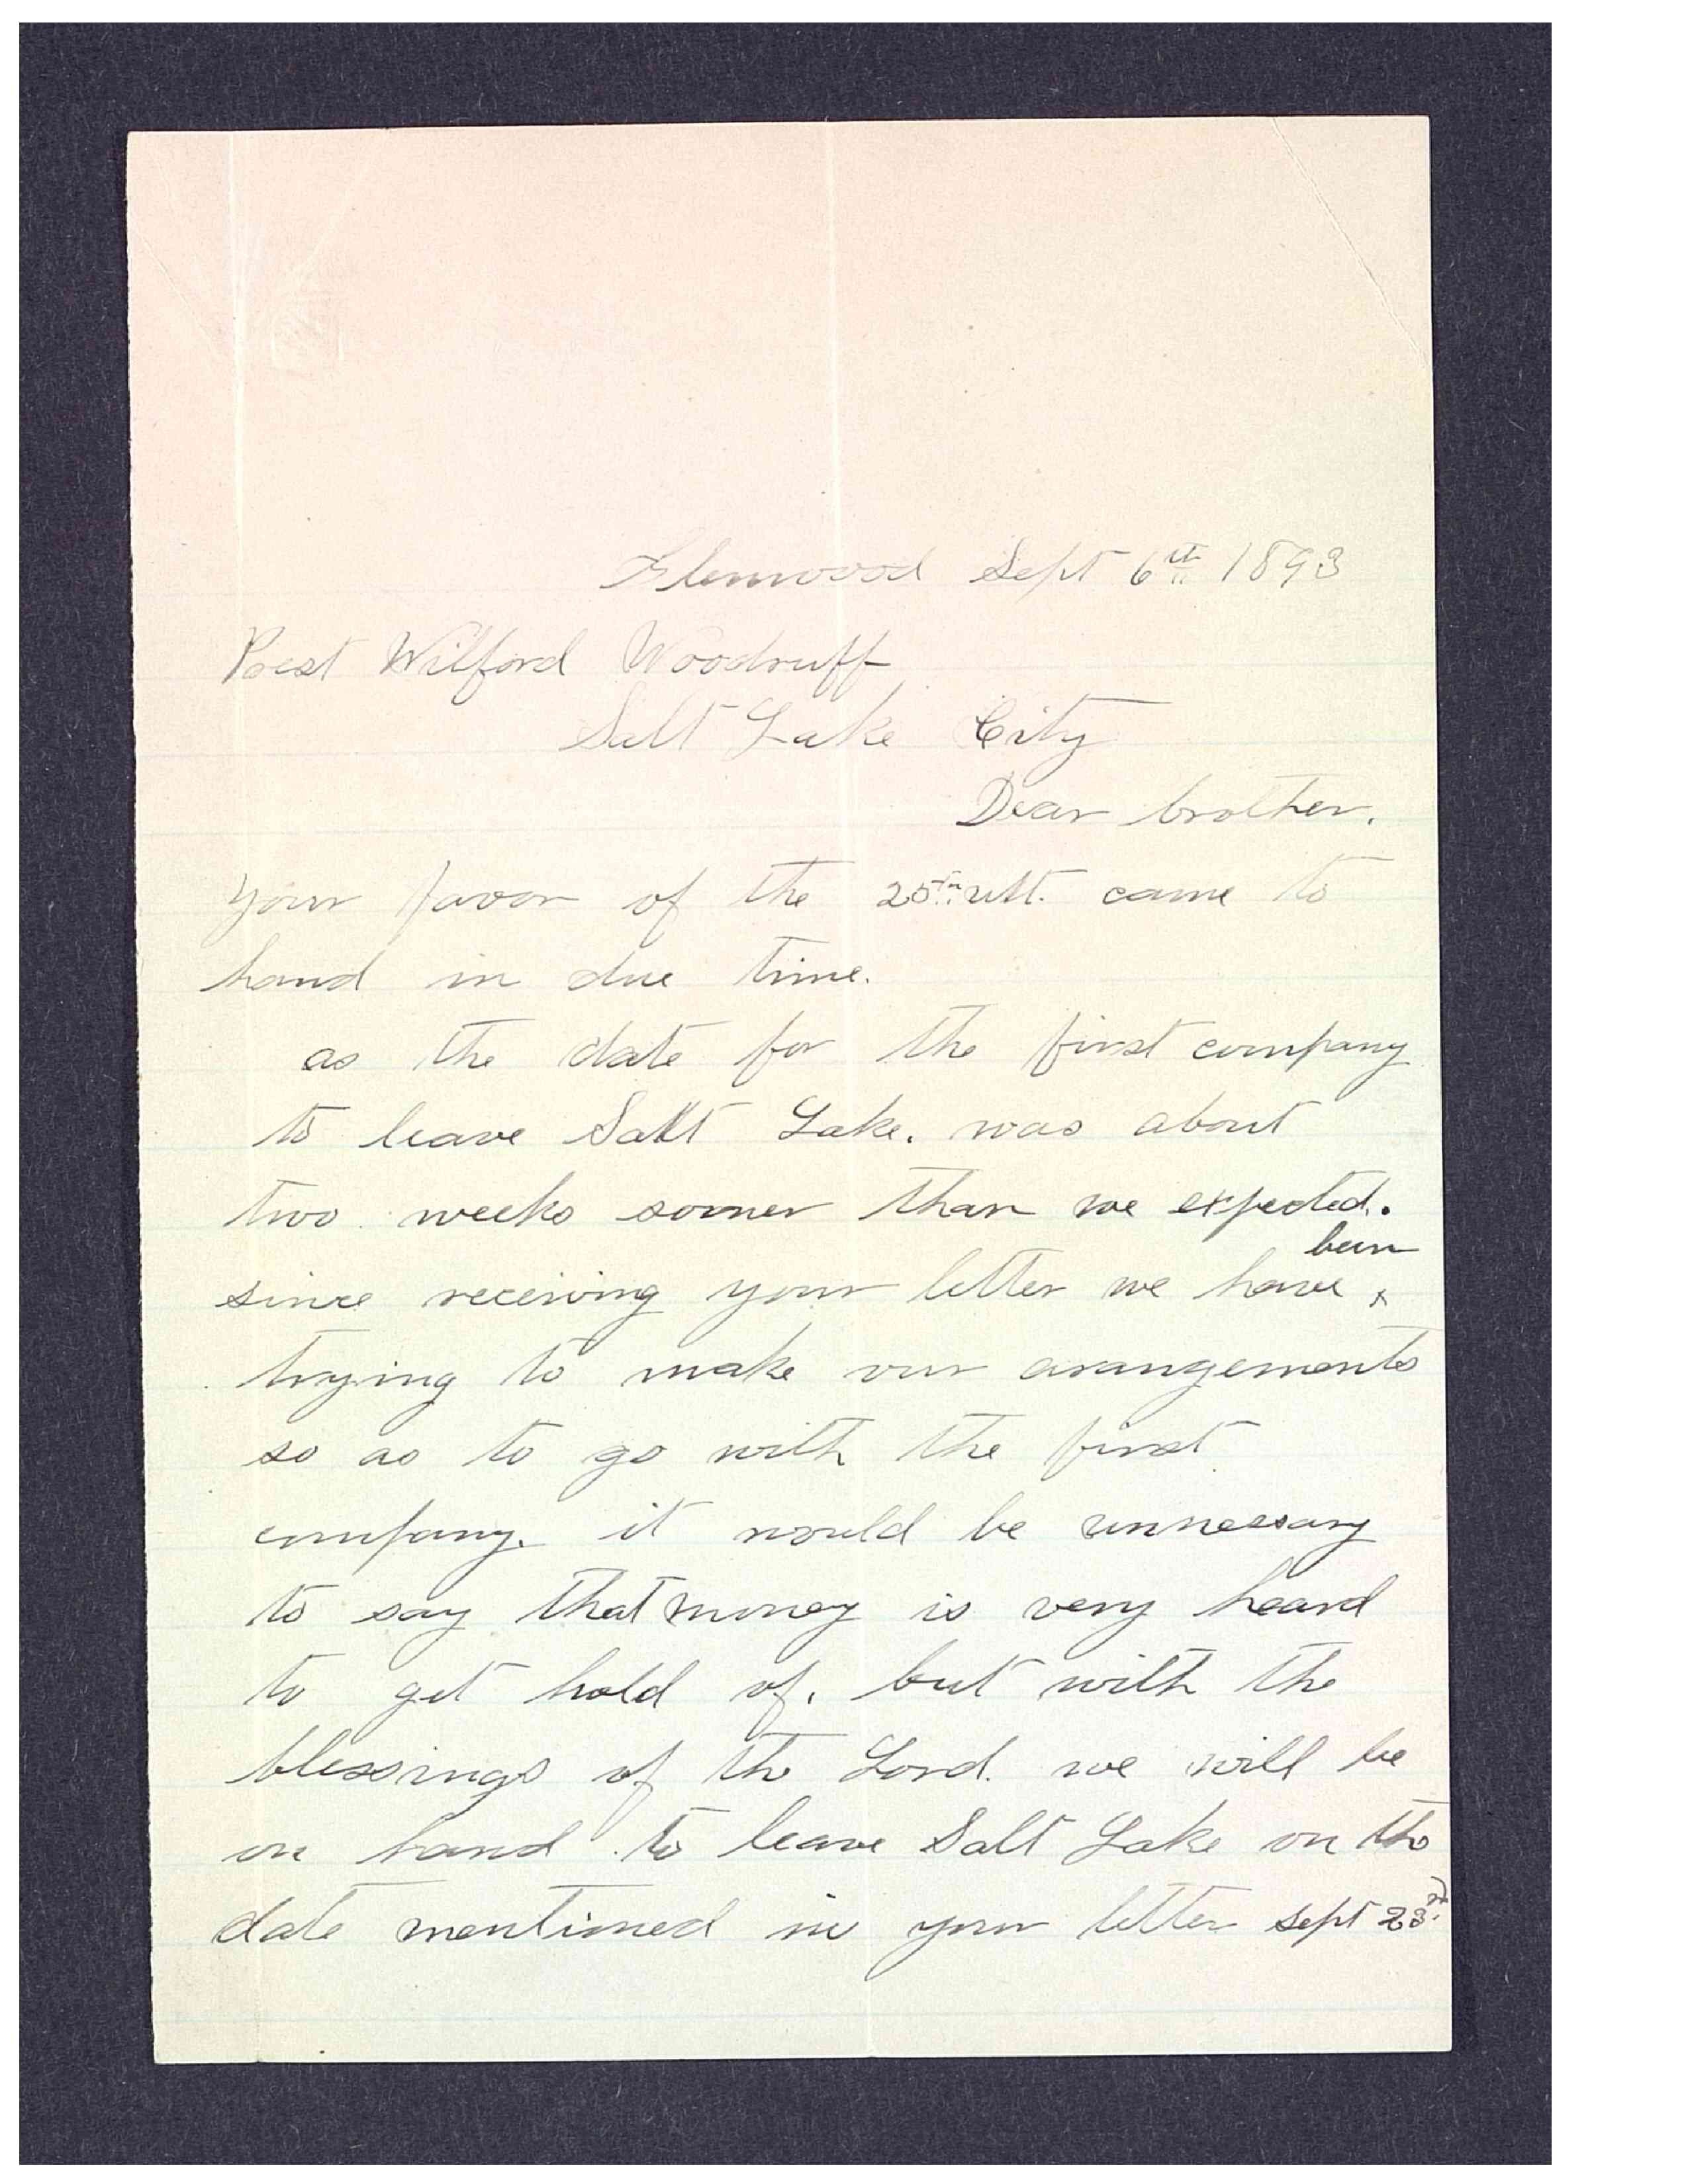 Glenwood Sept 6th 1893
Prest Wilford Woodruff
Salt Lake City
Dear brother.
Your favor of the 25th ult. came to
hand in due time.
as the date for the first company
to leave Salt Lake. was about
two weeks sooner than we expected.
been
since receiving your letter we have ^
trying to make our arangements
so as to go with the first
company. it would be unnessary
to say that money is very heard
to get hold of. but with the
blessings of the Lord. we will be
on hand to leave Salt Lake on the
date mentioned in your letter sept 23rd